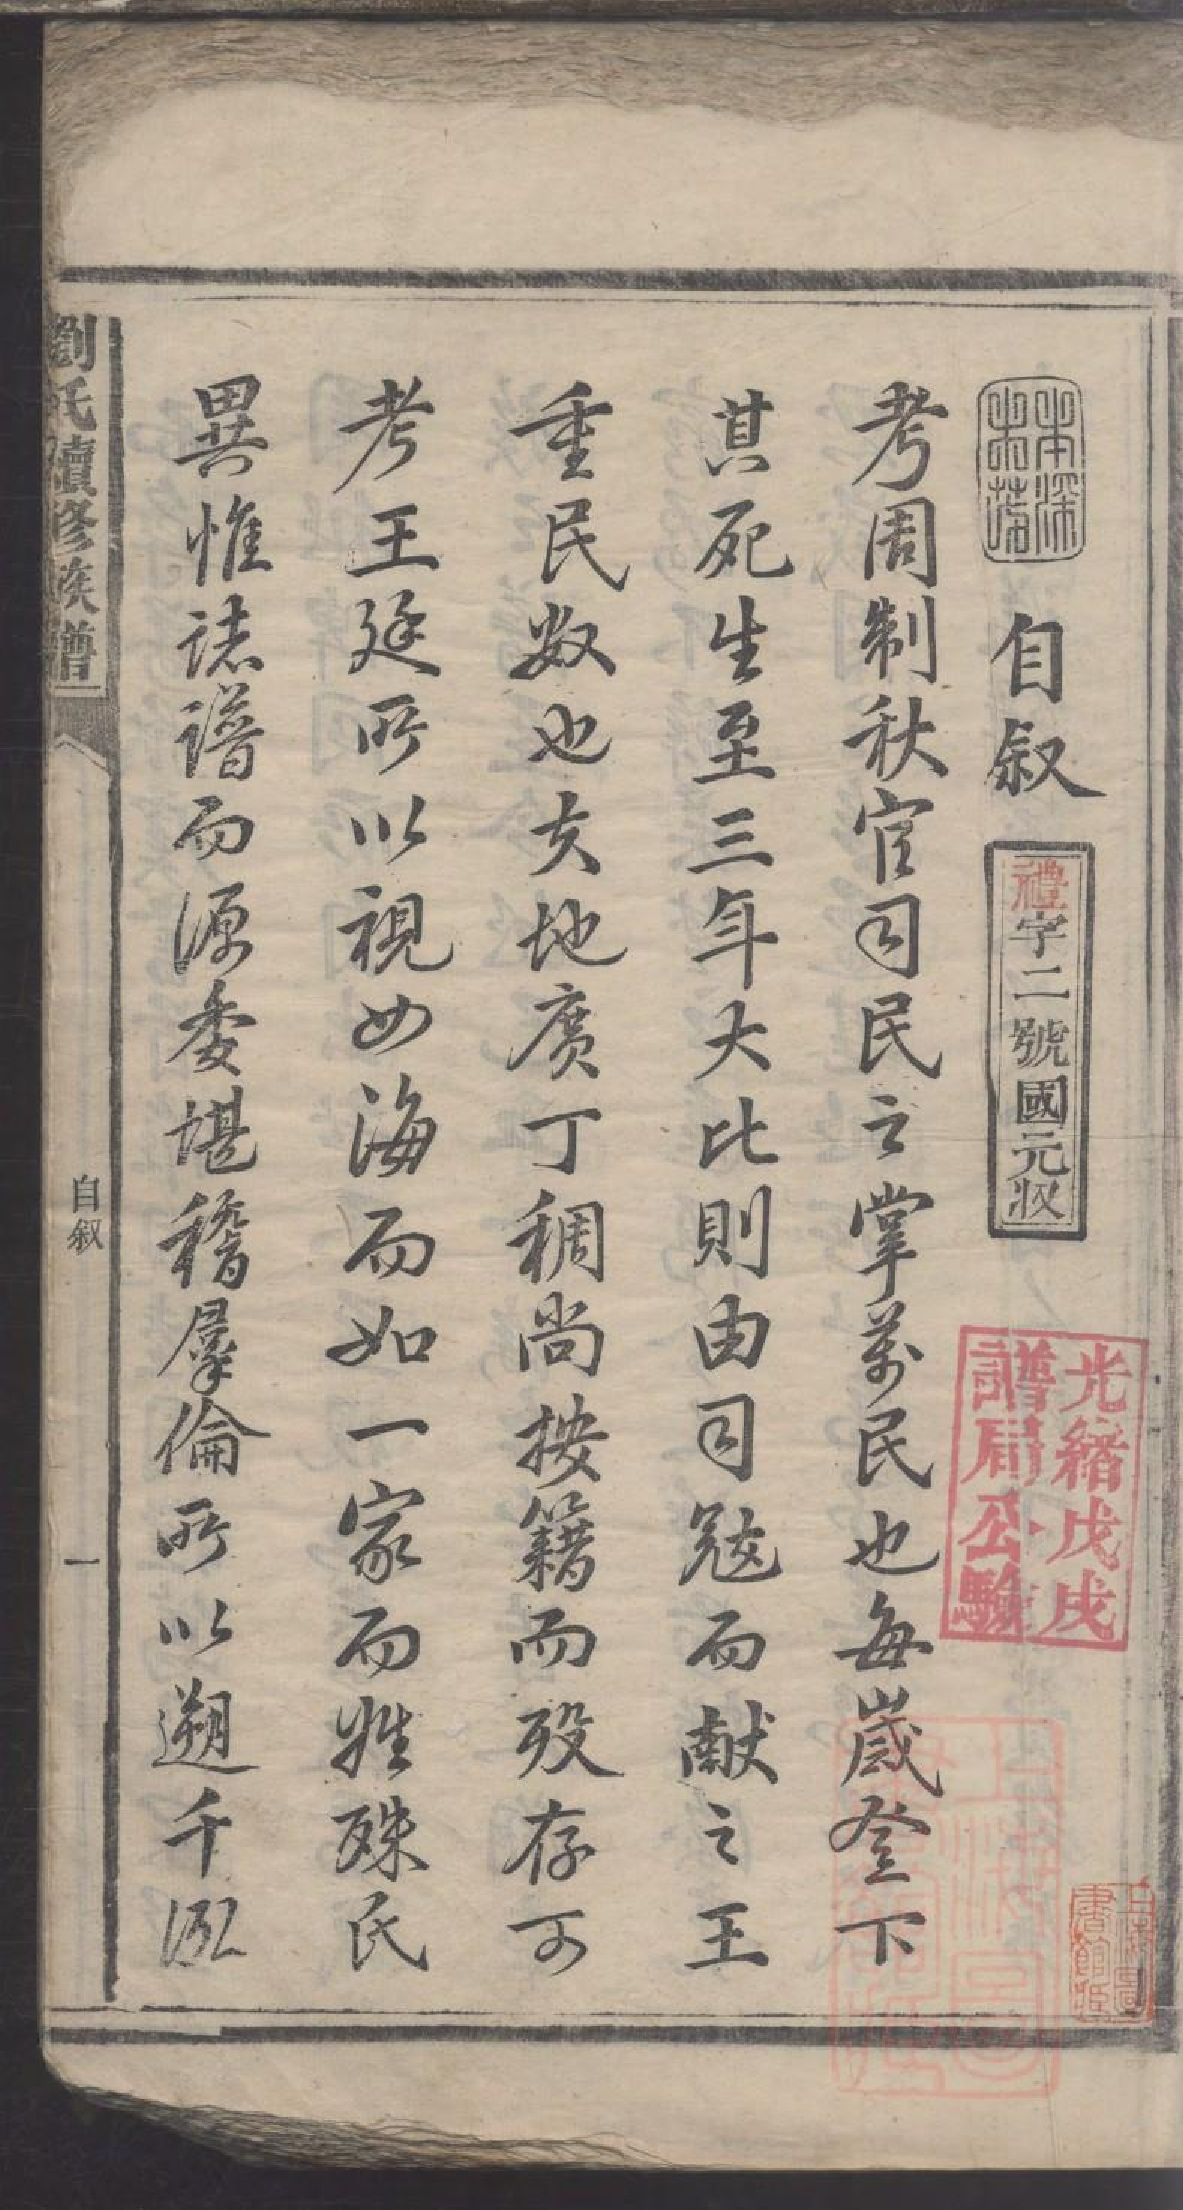 本深末
自叙
禮字二號國元收
光緒戊戌
譜局公驗
上海圖
書館藏
考周制秋官司民之掌萬民也每歲登下
其死生至三年大比則由司寇而献之王
重民数也夫地廣丁稠尚按籍而殁存可
考王廷所以視四海而如一家而姓殊氏
異惟誌譜而源委堪稽羣倫所以遡千泒
劉氏續修族譜
自叙
一